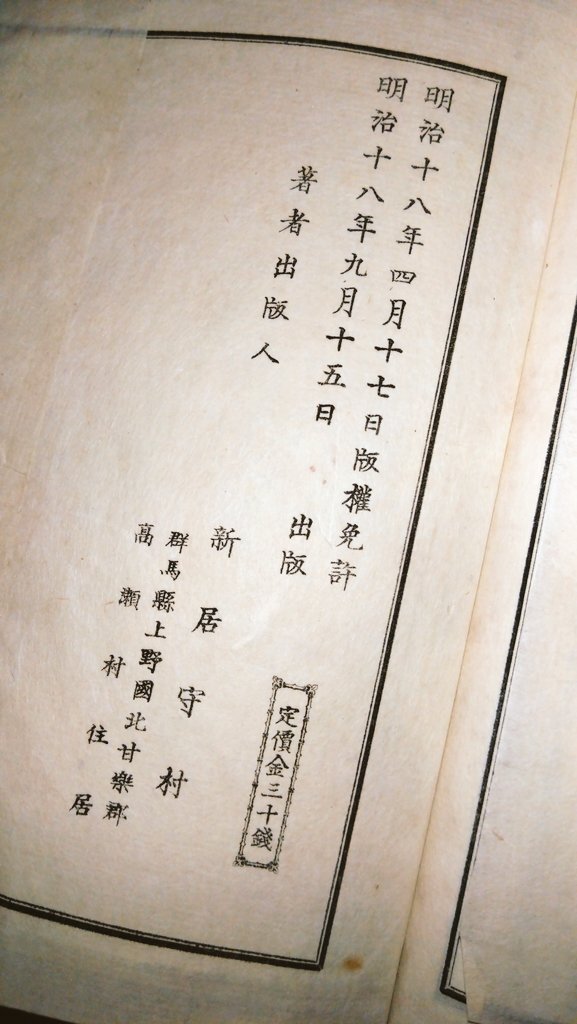 明治十八年四月十七日版權免許
明治十八年九月十五日 出版
定價金三十錢
著者出版人
新居守村
群馬縣上野國北甘樂郡
高瀬村住居